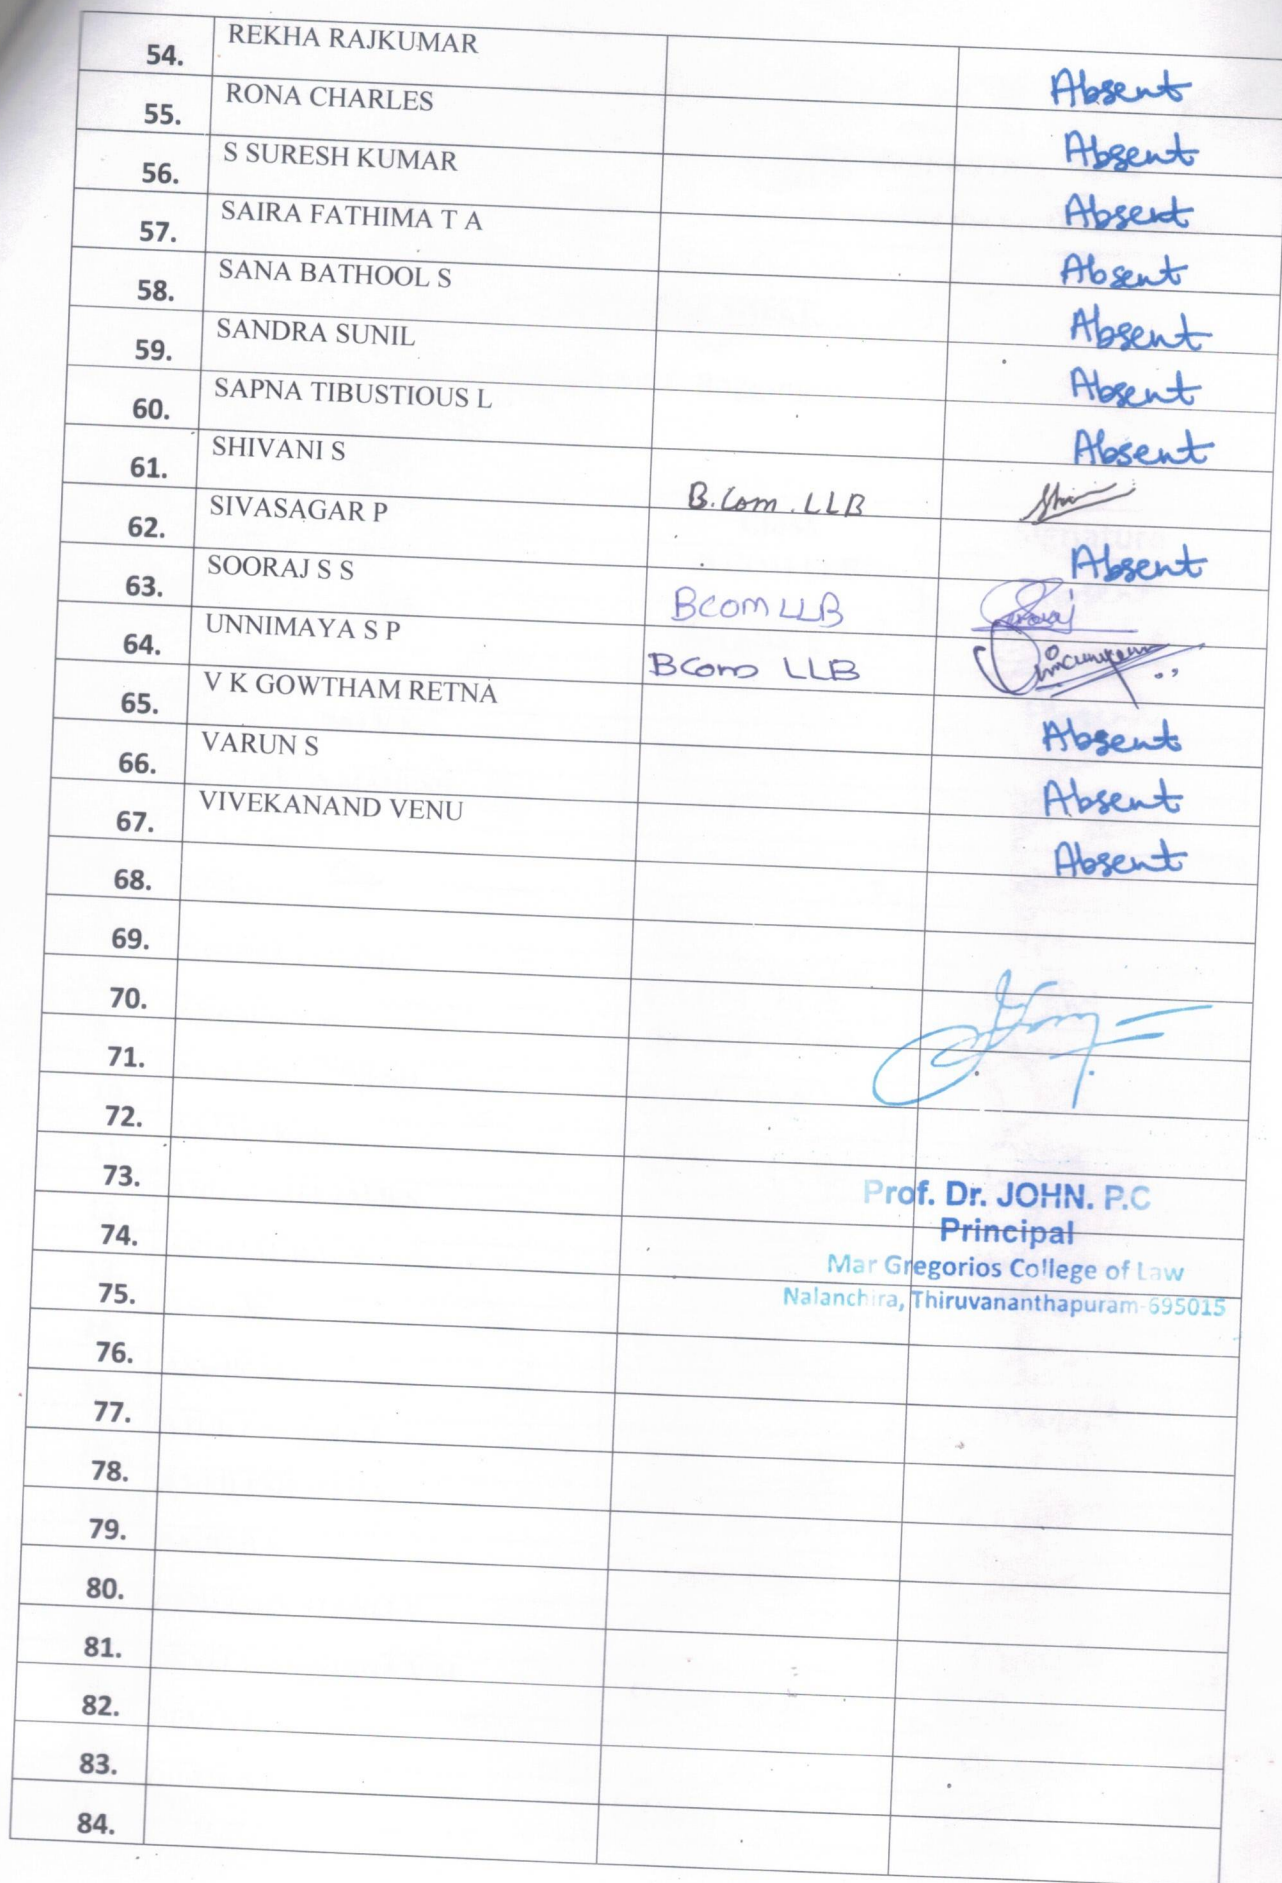 54. REKHA RAJKUMAR Absent
55. RONA CHARLES Absent
56. S SURESH KUMAR Absent
57. SAIRA FATHIMA T A Absent
58. SANA BATHOOL S Absent
59. SANDRA SUNIL Absent
60. SAPNA TIBUSTIOUS L Absent
61. SHIVANI S B.Com.LLB
62. SIVASAGAR P Absent
63. SOORAJ S S BCOM LLB
64. UNNIMAYA S P BCom LLB
65. V K GOWTHAM RETNA Absent
66. VARUN S Absent
67. VIVEKANAND VENU Absent
68.
69.
70.
71.
72.
73.
Prof. Dr. JOHN. P.C
74.
Principal
Mar Gregorios College of Law
75.
Nalanchira, Thiruvananthapuram-695015
76.
77.
78.
79.
80.
81.
82.
83.
84.